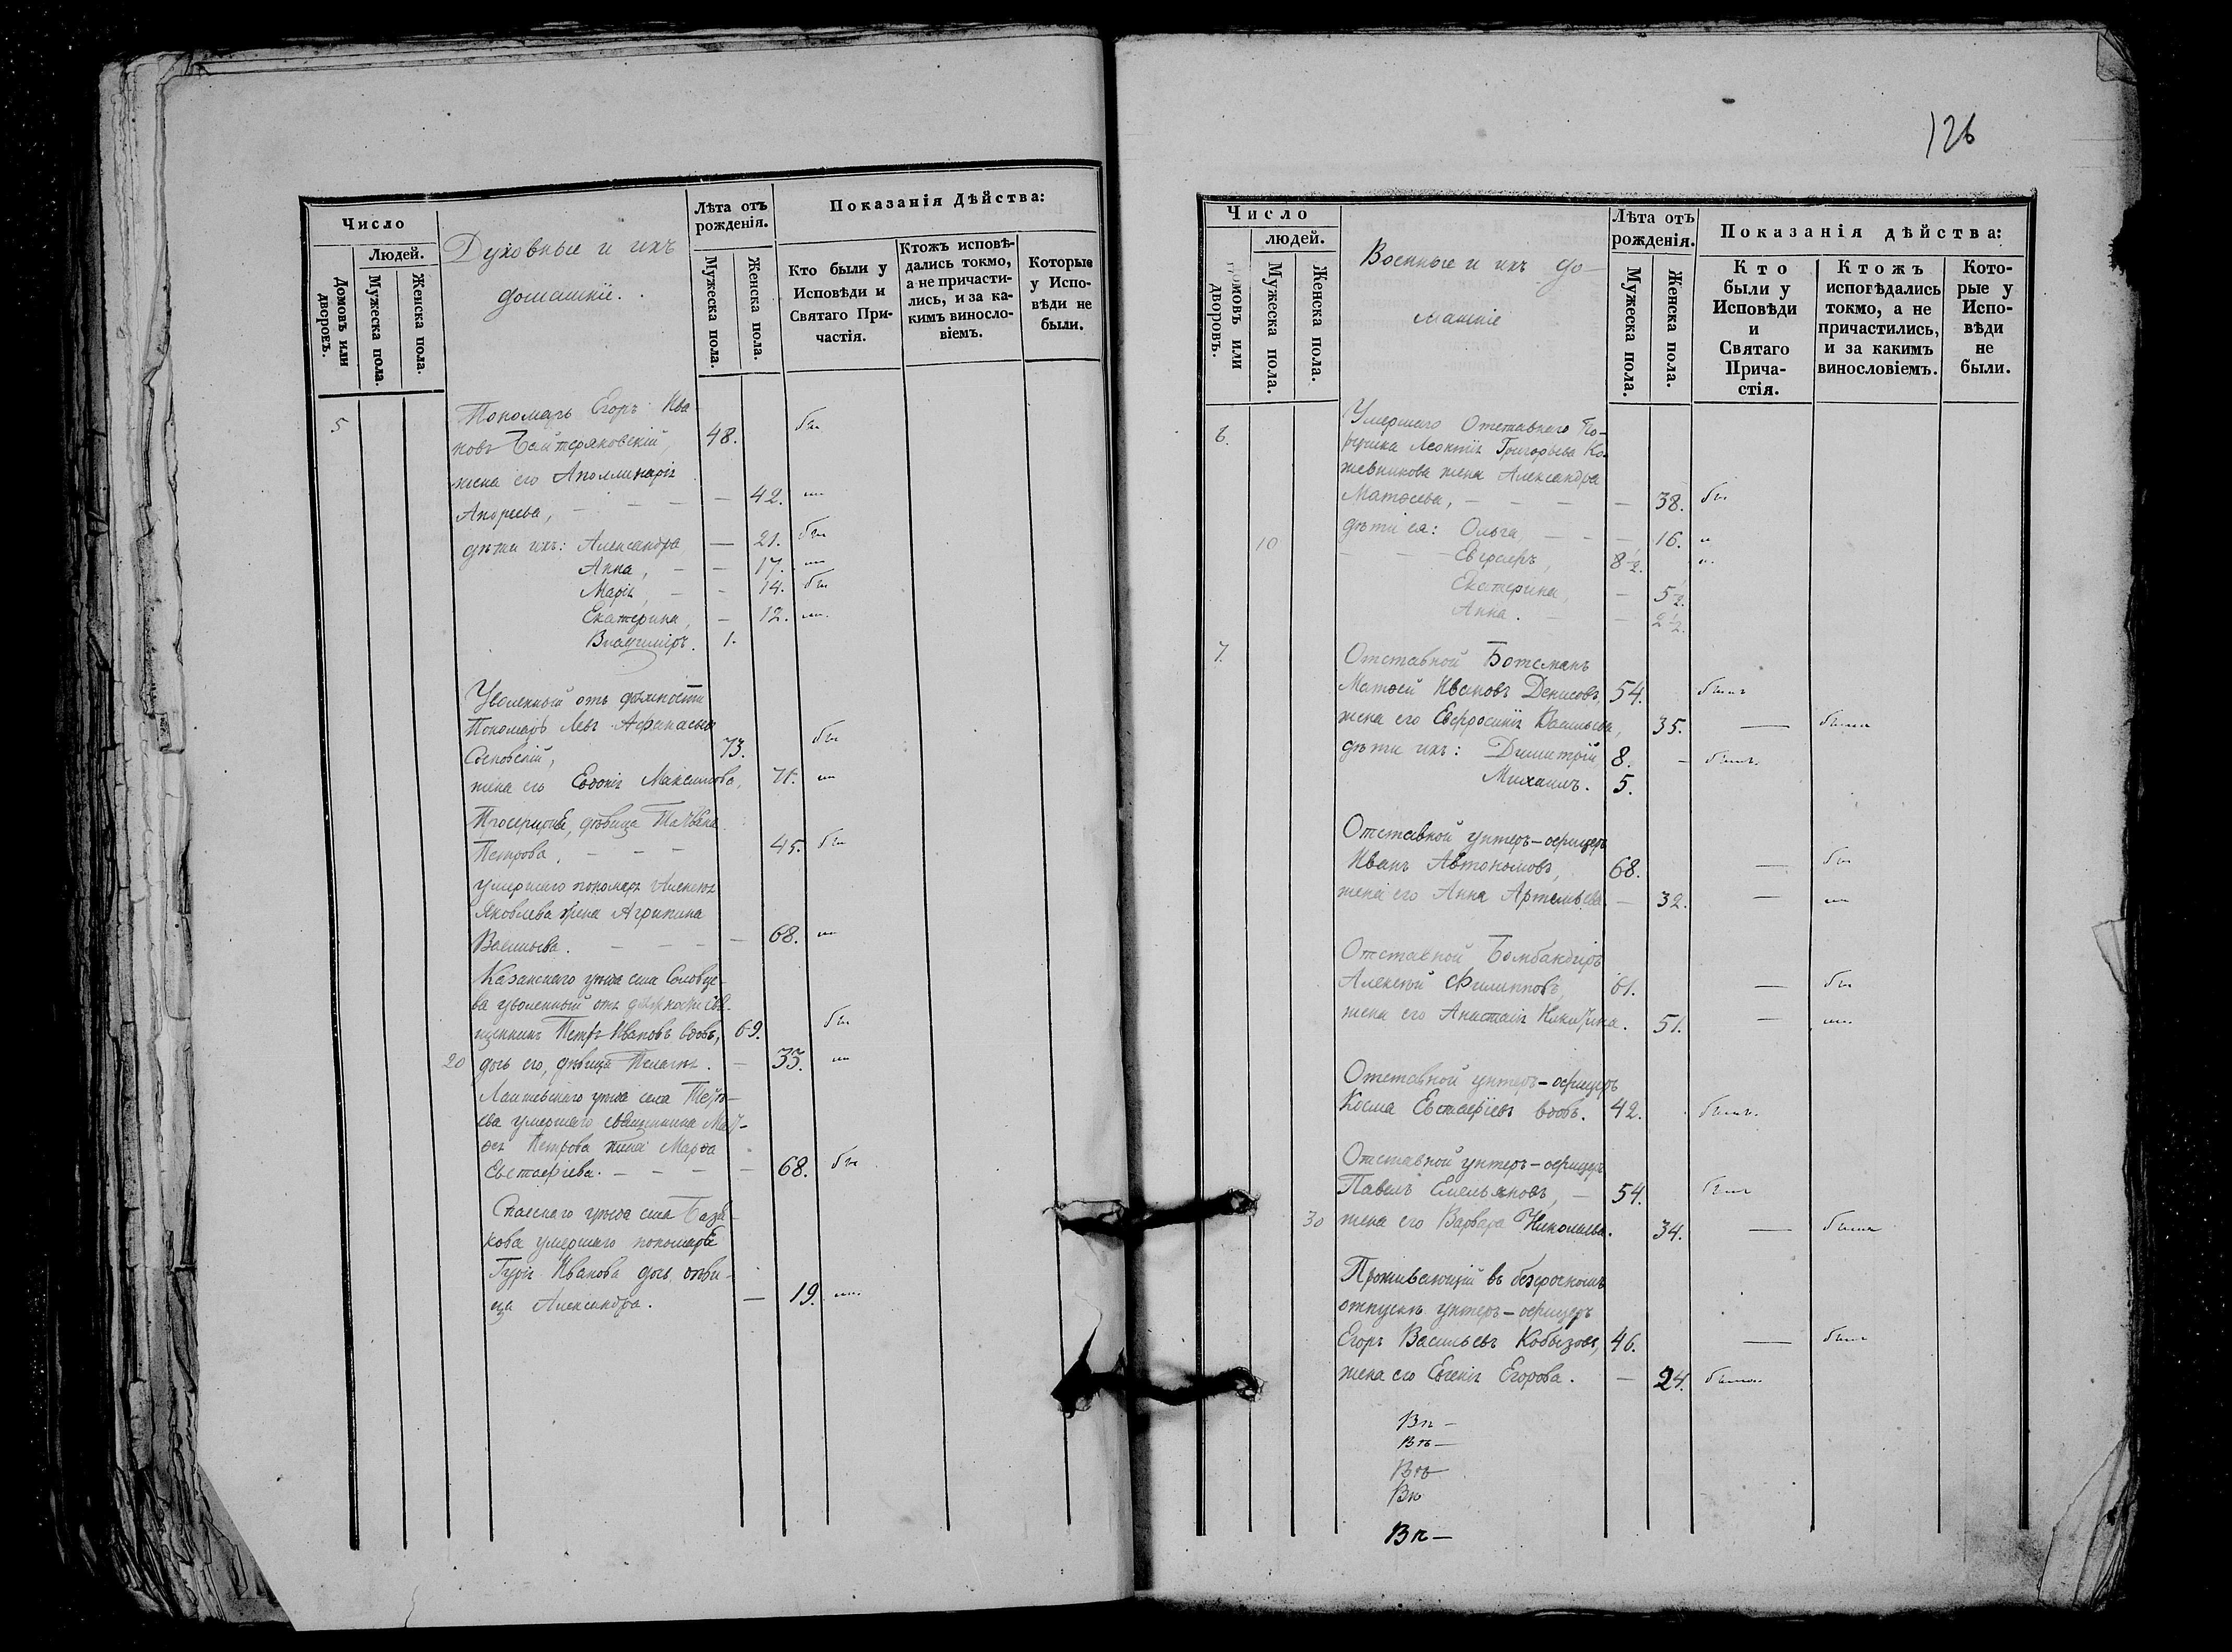 Число
Людей.
Домовъ или дворовъ.
Мужеска пола.
Женска пола.
Духовные и ихъ
домашніе.
Лѣта отъ рожденія.
Мужеска пола.
Женска пола.
Показанія Дѣйства:
Кто были у Исповѣди и Святаго При-
частія.
Ктожъ исповѣ-
дались токмо,
а не причасти-
лись, и за ка-
кимъ виносло-
віемъ.
Которые
у Испо-
вѣди не
были.
5 Пономарь Егоръ Ива-
новъ 48. бы
жена его Апполинарія
Андреева, — — — — 42.
дѣти ихъ: Александра — 21. бы
Анна, — — 17.
Марія, — — 14. бы
Екатерина, — 12.
Владиміръ. 1.
Уволенный отъ должности
Пономарь Левъ Афанасьевъ
73. бы
жена его Евдокія Максимова, 71.
Просфирня, дѣвица Татьяна
Петрова, — — — 45. бы
умершаго пономаря Алексѣя
Яковлева жена Агрипина
Васильева. — — — — 68.
Казанскаго уѣзда села
уволенный отъ должности Свя-
щенникъ Петръ Ивановъ вдовъ, 69. бы
20 дочь его, дѣвица Пелагія. — 33.
Лаишевскаго уѣзда села
ева умершаго священника Мат-
ѳея Петрова жена Марѳа
Евстафіева. — — — — 68. бы
Спасскаго уѣзда села База-
кова умершаго пономаря
Гурія Иванова дочь дѣви-
ца Александра. — 19.
126
Число
людей.
домовъ или дворовъ.
Мужеска пола.
Женска пола.
Военные и ихъ до-
машніе
Лѣта отъ рожденія.
Мужеска пола.
Женска пола.
Показанія дѣйства:
Кто
были у
Исповѣди
и
Святаго
Прича-
стія.
Ктожъ
исповѣдались
токмо, а не
причастились,
и за какимъ
винословіемъ.
Кото-
рые у
Испо-
вѣди
не
были.
6. Умершаго Отставнаго По-
ручика Леонтія Григорьева Ко-
жевникова жена Александра
Матвѣева, — — — — 38. бы
дѣти ея: Ольга, — — — 16.
10 — — — 8 1/2.
Екатерина, — 5 1/2.
Анна. — — 2 1/2.
7. Отставной Ботсманъ
Матѳей Ивановъ Денисовъ, 54. былъ
жена его Евфросинія Васильева, 35. — была
дѣти ихъ: Димитрій 8. — былъ.
Михаилъ. 5.
Отставной унтеръ-офицеръ
Иванъ Автономовъ, 68. — бы
жена его Анна Артемьева — 32. —
Отставной Бомбандиръ
Алексѣй Филипповъ, 61. — бы
жена его Анастасія Никитина. 51. —
Отставной унтеръ-офицеръ
Косма Евстафіевъ вдовъ. 42. былъ.
Отставной унтеръ-офицеръ
Павелъ Емельяновъ, — 54. былъ
30 жена его Варвара Николаева. 34. — была
Проживающій въ безсрочномъ
отпускѣ унтеръ-офицеръ
Егоръ Васильевъ Кобызовъ, 46. — былъ
жена его Евгенія Егорова. — 24. была.